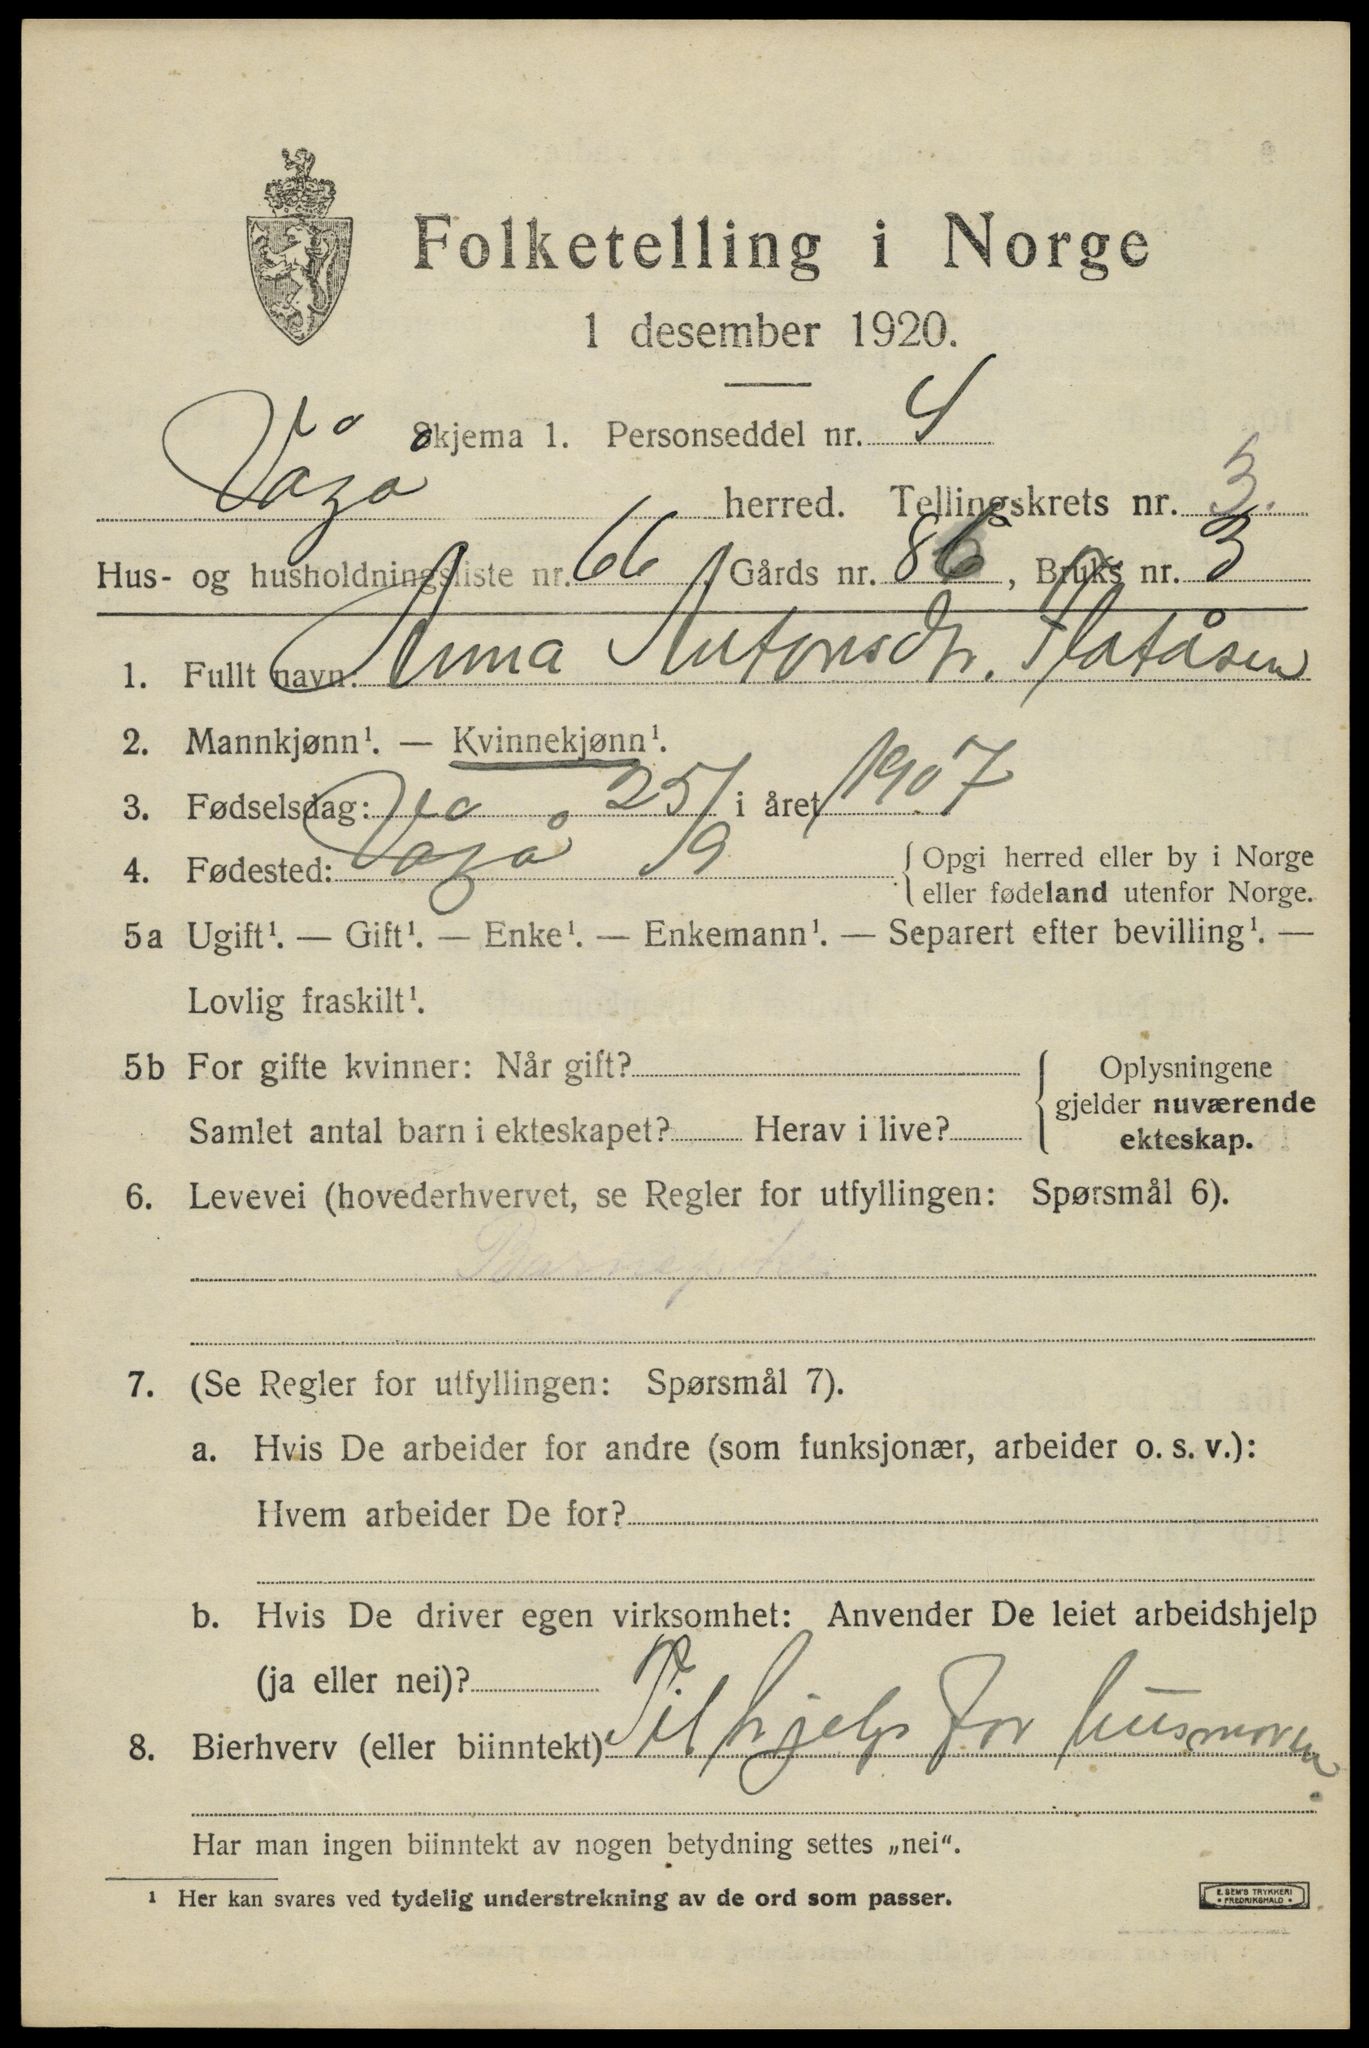 Folketelling i Norge
1 desember 1920.
Skjema 1. Personseddel nr. 4
Vågå herred. Tellingskrets nr. 3.
Hus- og husholdningsliste nr. 66 Gårds nr. 86, Bruks nr. 3
1. Fullt navn: Anna Antonsdtr. Flatåsen
2. Mannkjønn¹. — Kvinnekjønn¹.
3. Fødselsdag: 25/9 i året 1907
4. Fødested: Vågå {Opgi herred eller by i Norge
eller fødeland utenfor Norge.
5a Ugift¹. — Gift¹. — Enke¹. — Enkemann¹. — Separert efter bevilling¹. —
Lovlig fraskilt¹.
5b For gifte kvinner: Når gift? {Oplysningene
gjelder nuværende
Samlet antal barn i ekteskapet? Herav i live? ekteskap.
6. Levevei (hovederhvervet, se Regler for utfyllingen: Spørsmål 6).
7. (Se Regler for utfyllingen: Spørsmål 7).
a. Hvis De arbeider for andre (som funksjonær, arbeider o. s. v.):
Hvem arbeider De for?
b. Hvis De driver egen virksomhet: Anvender De leiet arbeidshjelp
(ja eller nei)?
8. Bierhverv (eller biinntekt) Til hjelp for husmoren.
Har man ingen biinntekt av nogen betydning settes „nei“.
¹ Her kan svares ved tydelig understrekning av de ord som passer.
E. SEM'S TRYKKERI
• FREDRIKSHALD •